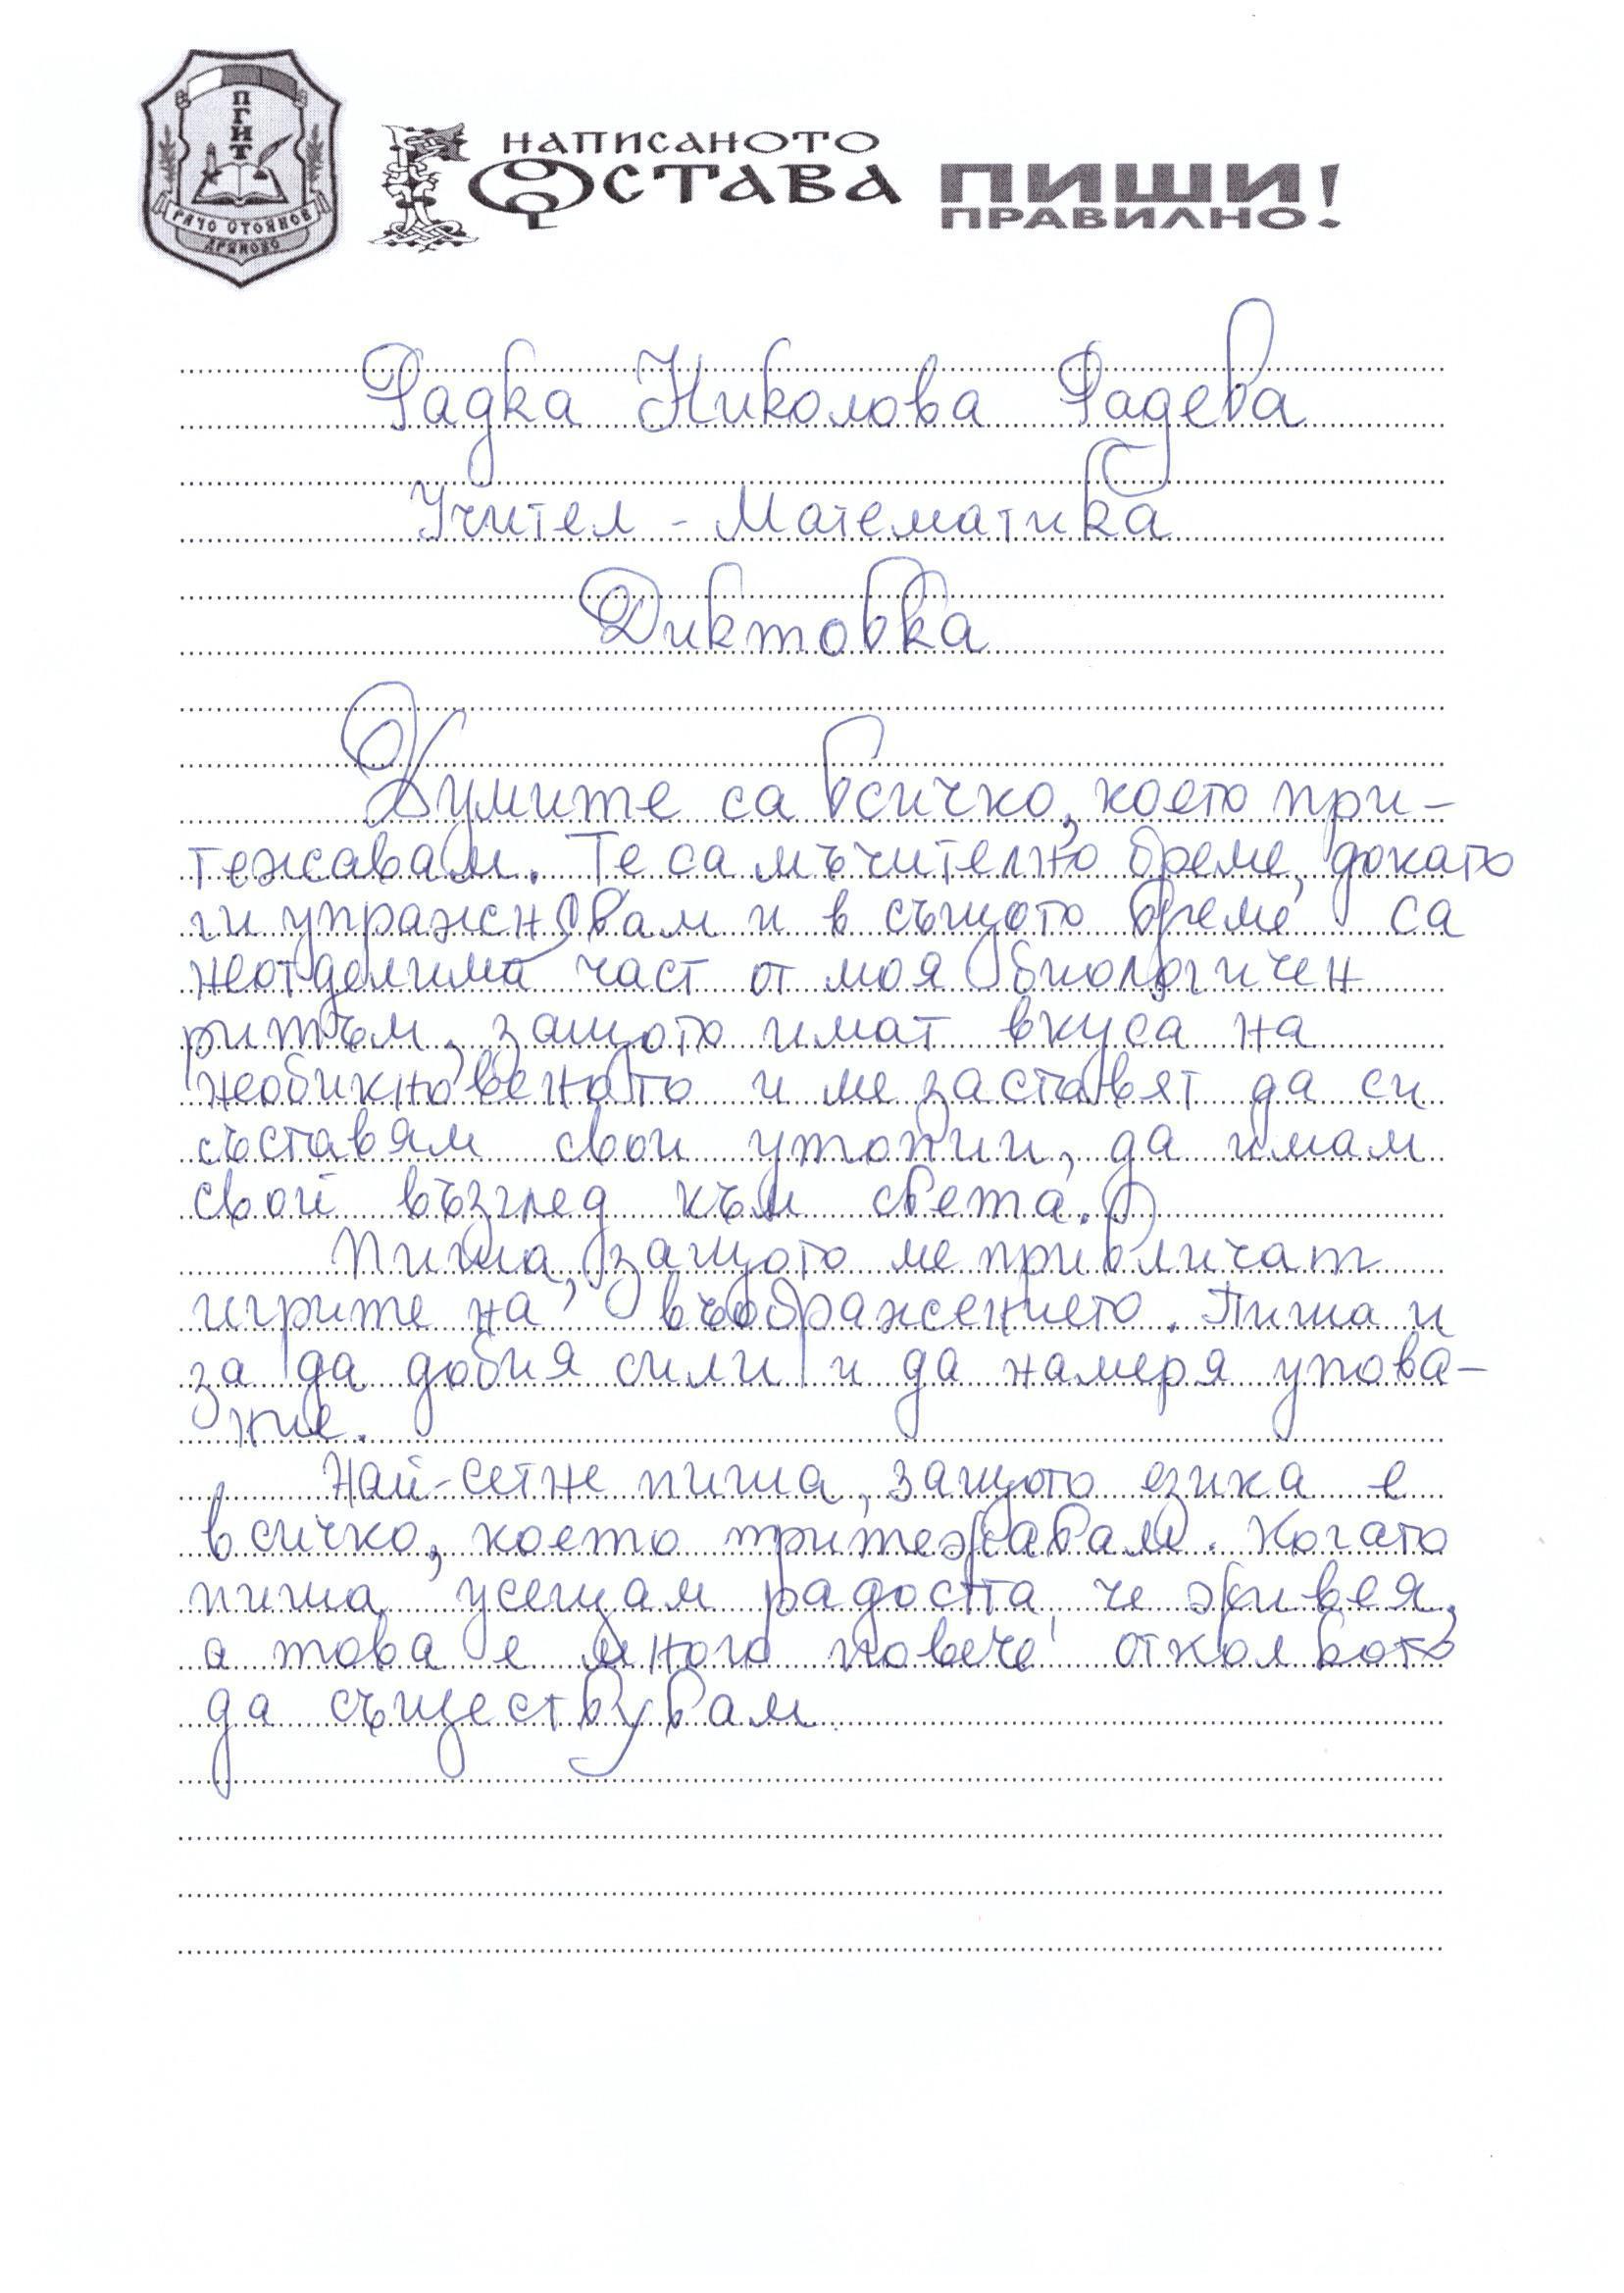 ПГИТ
РАЧО СТОЯНОВ
ДРЯНОВО
НАПИСАНОТО
ОСТАВА
ПИШИ
ПРАВИЛНО!
Радка Николова Радева
Учител - Математика
Диктовка
Думите са всичко, което при-
тежавам. Те са мъчително бреме, докато
ги упражнявам и в същото време са
неотделима част от моя биологичен
ритъм, защото имат вкуса на
необикновеното и ме заставят да си
съставям свои утопии, да имам
свой възглед към света.
Пиша, защото ме привличат
игрите на въображението. Пиша и
за да добия сили и да намеря упова-
ние.
Най-сетне пиша, защото езика е
всичко, което притежавам. Когато
пиша, усещам радостта, че живея,
а това е много повече отколкото
да съществувам.